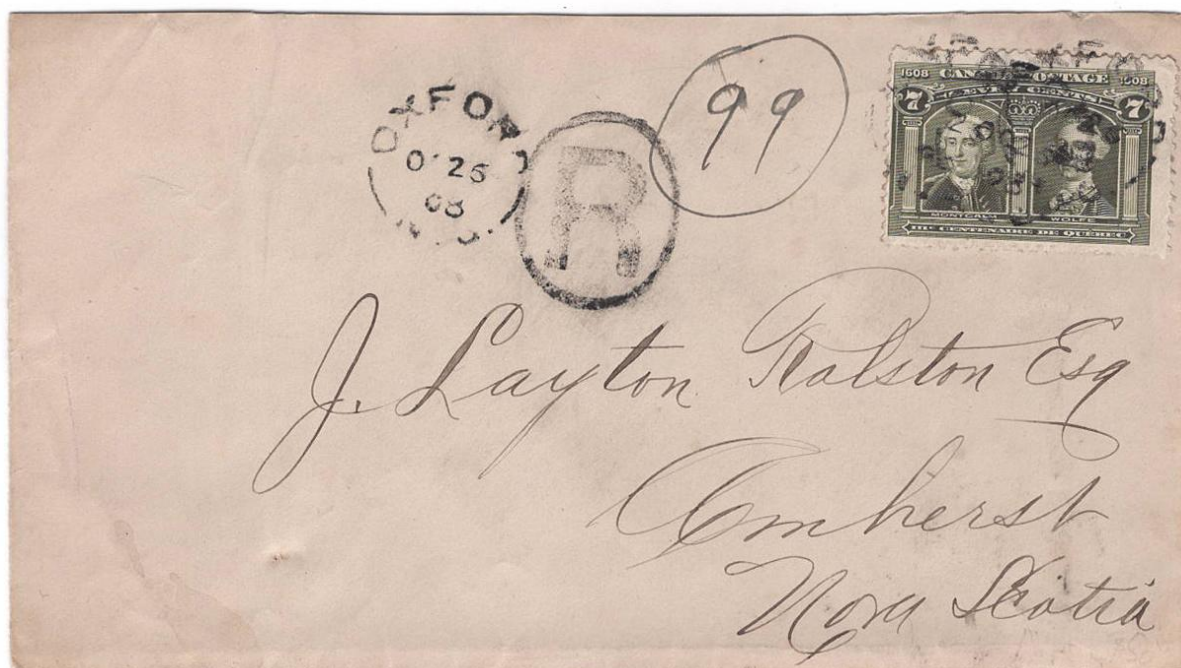 OXFORD
OC 26
08
N.S.
R
99
1608 CANADA POSTAGE 1908
7 SEVEN CENTS 7
MONTCALM WOLFE
IIIe CENTENAIRE DE QUEBEC
J. Layton Ralston Esq
Amherst
Nova Scotia